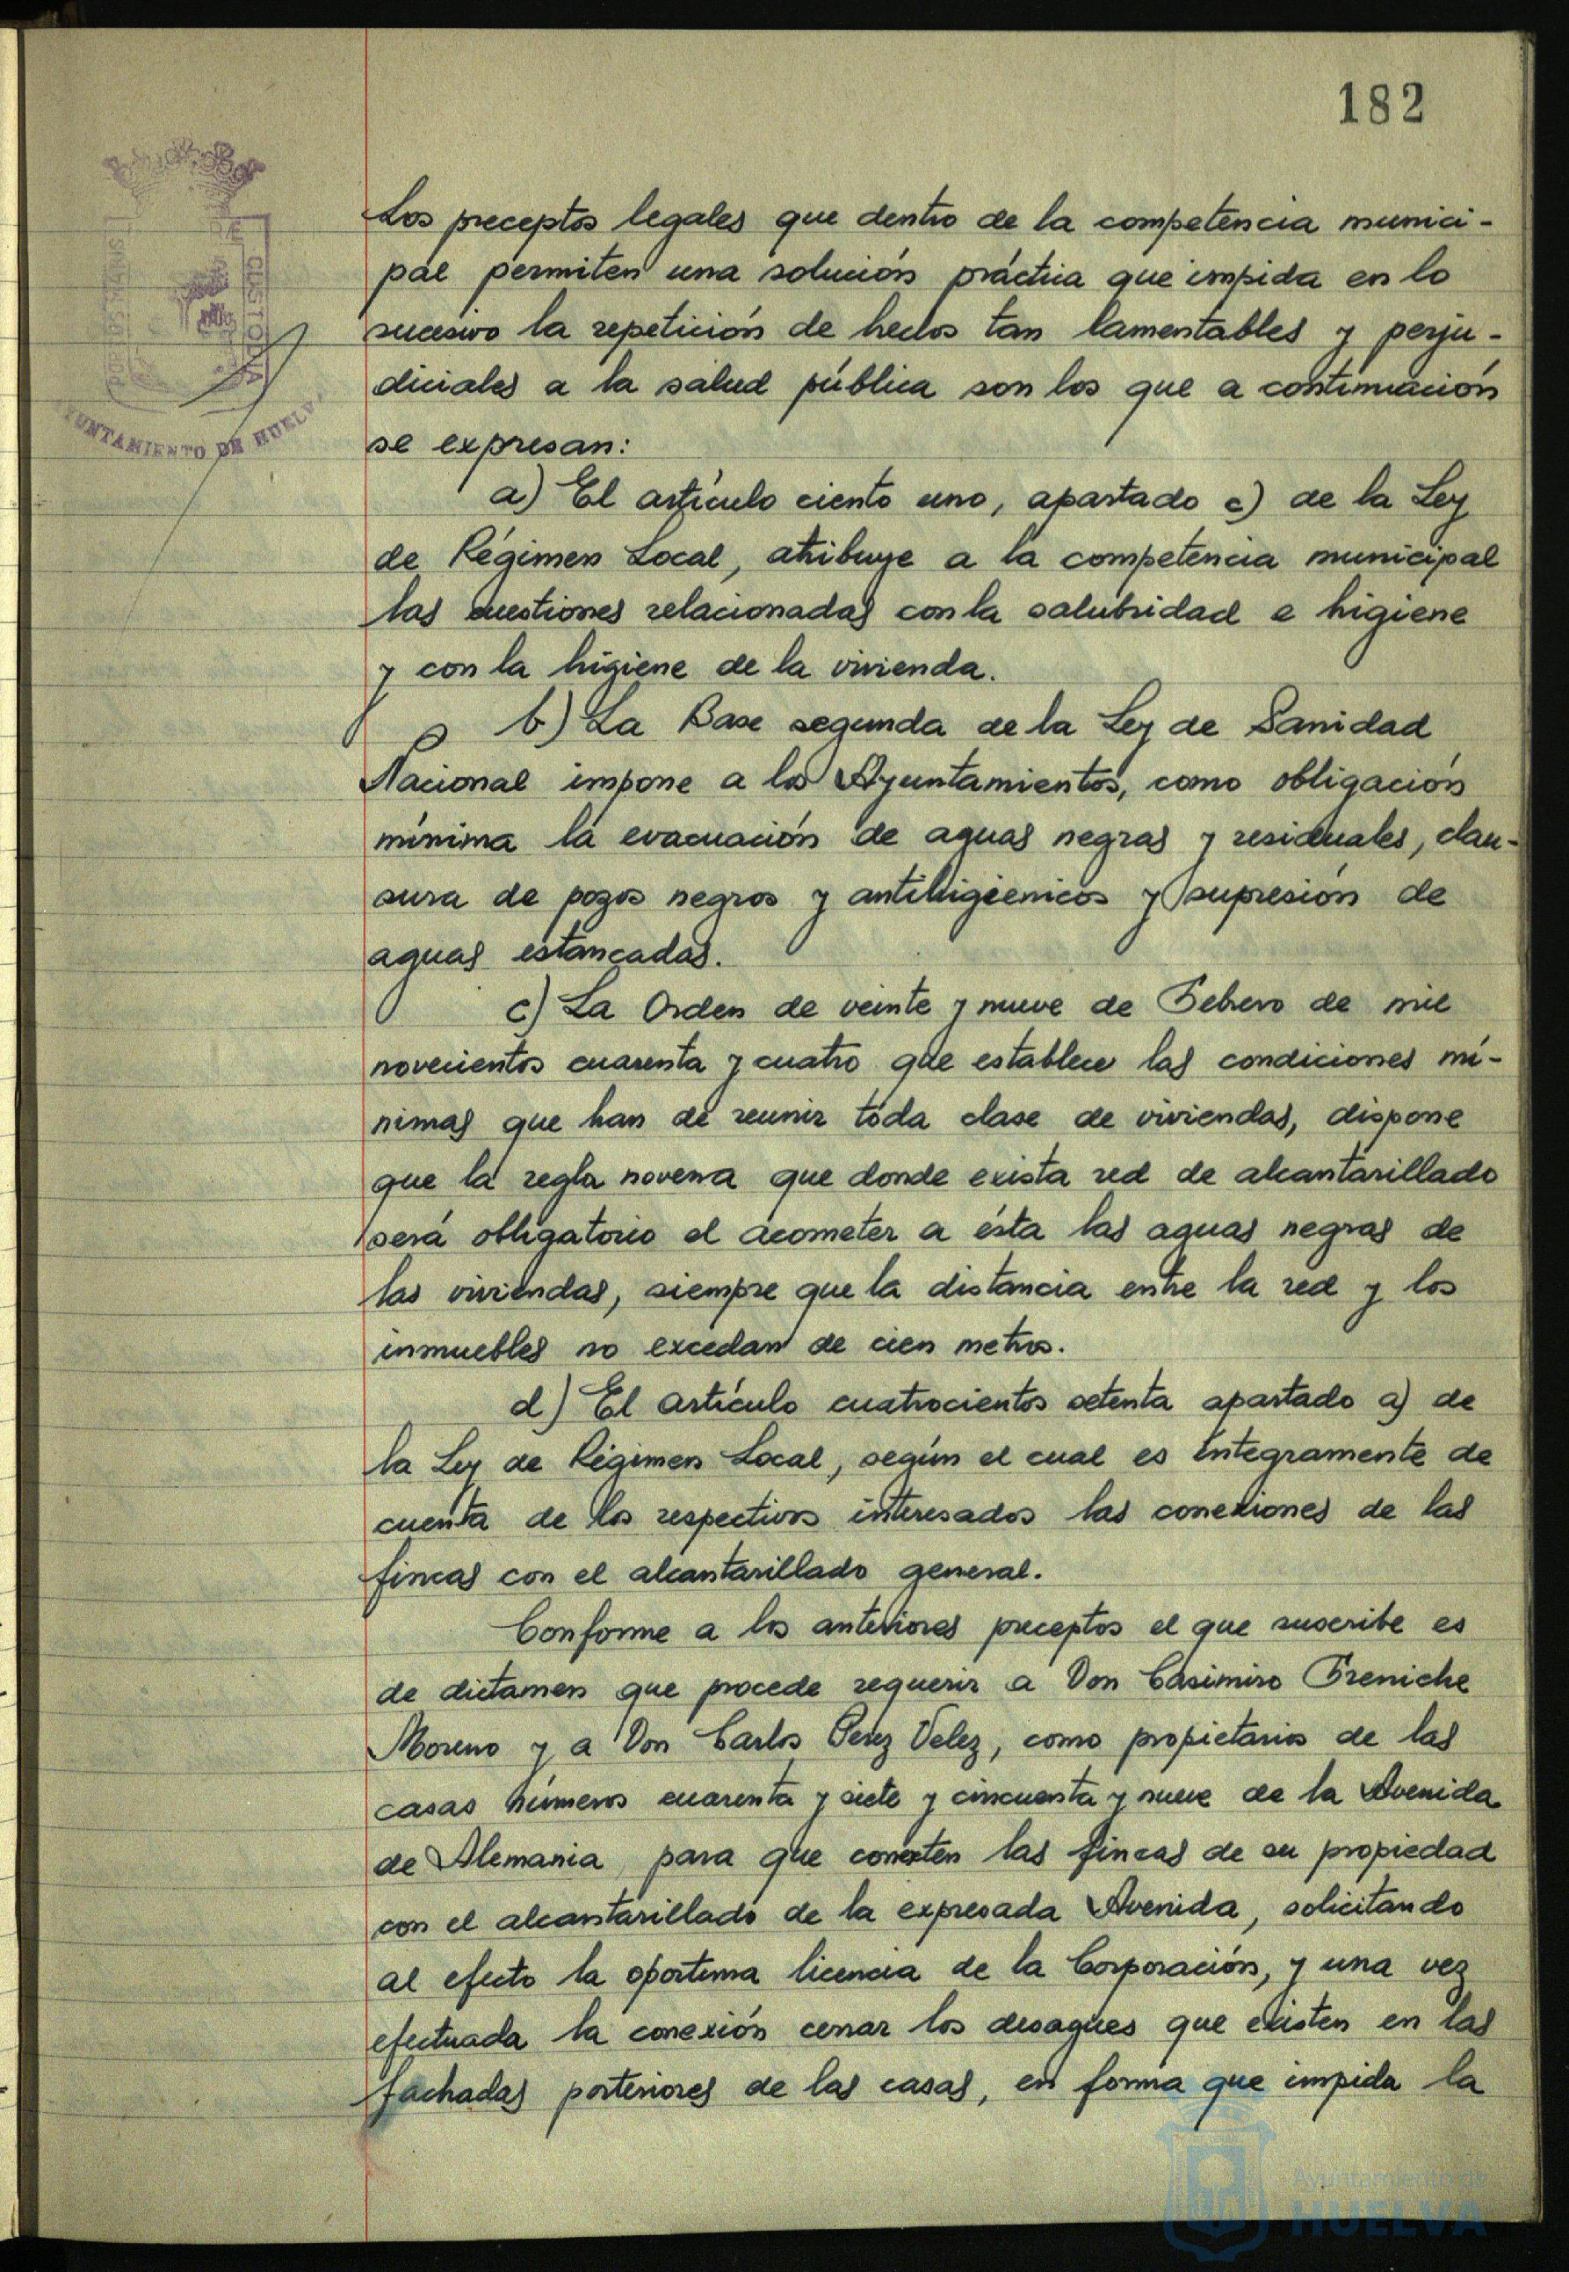 182
Los preceptos legales que dentro de la competencia munici-
pal permiten una solución práctica que impida en lo
sucesivo la repetición de hechos tan lamentables y perju-
diciales a la salud pública son los que a continuación
se expresan:
a) El artículo ciento uno, apartado c) de la Ley
de Régimen Local, atribuye a la competencia municipal
las cuestiones relacionadas con la salubridad e higiene
y con la higiene de la vivienda.
b) La Base segunda de la Ley de Sanidad
Nacional impone a los Ayuntamientos, como obligación
mínima la evacuación de aguas negras y residuales, clau-
sura de pozos negros y antihigienicos y supresión de
aguas estancadas.
c) La Orden de veinte y nueve de Febrero de mil
novecientos cuarenta y cuatro que establece las condiciones mí-
nimas que han de reunir toda clase de viviendas, dispone
que la regla novena que donde exista red de alcantarillado
será obligatorio el acometer a ésta las aguas negras de
las viviendas, siempre que la distancia entre la red y los
inmuebles no excedan de cien metros.
d) El artículo cuatrocientos setenta apartado a) de
la Ley de Régimen Local, según el cual es integramente de
cuenta de los respectivos interesados las conexiones de las
fincas con el alcantarillado general.
Conforme a los anteriores preceptos el que suscribe es
de dictamen que procede requerir a Don Casimiro Freniche
Moreno y a Don Carlos Perez Velez, como propietarios de las
casas números cuarenta y siete y cincuenta y nueve de la Avenida
de Alemania, para que conecten las fincas de su propiedad
con el alcantarillado de la expresada Avenida, solicitando
al efecto la oportuna licencia de la Corporación, y una vez
efectuada la conexión cerrar los desagües que existen en las
fachadas posteriores de las casas, en forma que impida la
CUSTODIA
AYUNTAMIENTO DE HUELVA
Ayuntamiento de
HUELVA